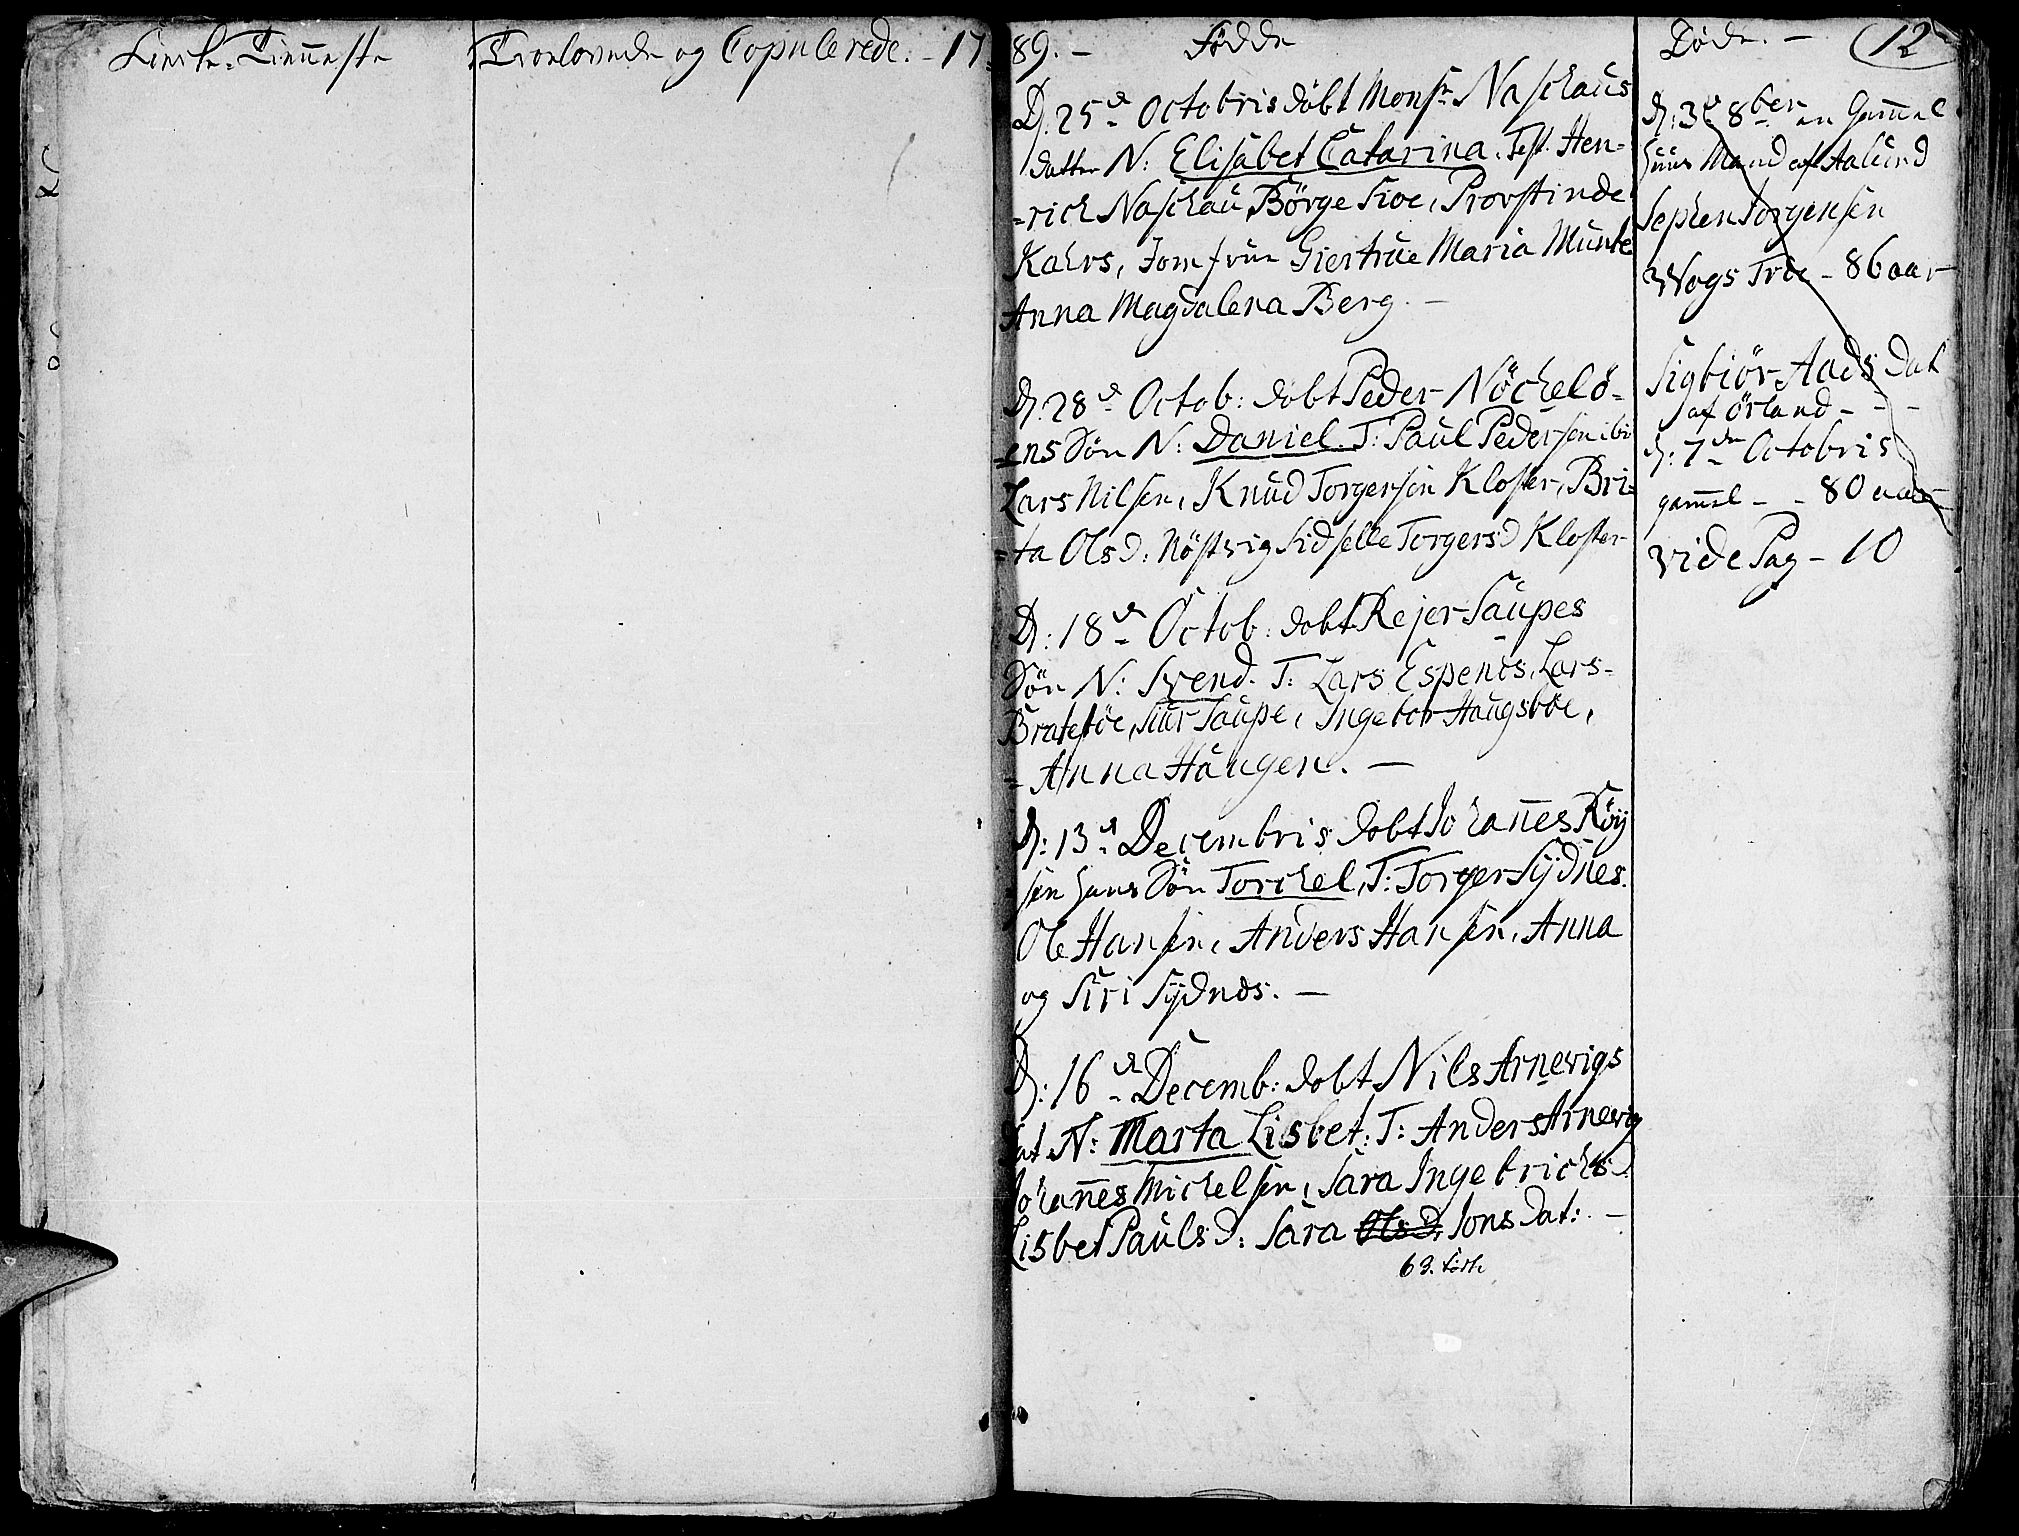 Kirke-Tienneste
Troelovede og Copulerede. - 17
89. - Födde
D. 25de Octobris döbt Monsr Naschaus
datter N: Elisabet Catarina. Test. Hen-
=rich Naschau, Börge Sioe, Provstinde
Kahrs, Jomfrue Giertrue Maria Munte
Anna Magdalena Berg. -
D. 28de Octob: döbt Peder Nöchelö-
=ens Sön N: Daniel. T: Paul Pedersen ibi
Lars Nilsen, Knud Torgersen Kloster, Bri=
=ta Olsd: Nöstvig Sidselle Torgersd Kloster
D: 18de Octob: dobt Rejer Saupes
Sön N: Svend. T: Lars Espenes, Lars-
Bratetöe, Siur Saupe, Ingebor Haugsböe,
=Anna Haugen. -
D: 13de Decembris dobt Johannes Röy
sen hans Sön Torchel, T: Torger Sydnes.
Ole Hansen, Anders Hansen, Anna
og Siri Sydnes. -
D: 16de Decemb: dobt Nils Arnevigs
dat N: Marta Lisbet: T: Anders Arnevig
Johannes Michelsen, Sara Ingebrichs
Lisbet Paulsd: Sara Olsd: Jons Dat: -
63. födte
Döde. - 12
D: 3de 8ber en Gammel
huus Mand af Aalund
Sephen Jorgensen
Wogs Tröe - 86 aar
Sigbiör Aads Dat
af örland - - -
D: 7de Octobris
gammel - - 80 aar
vide Pag - 10